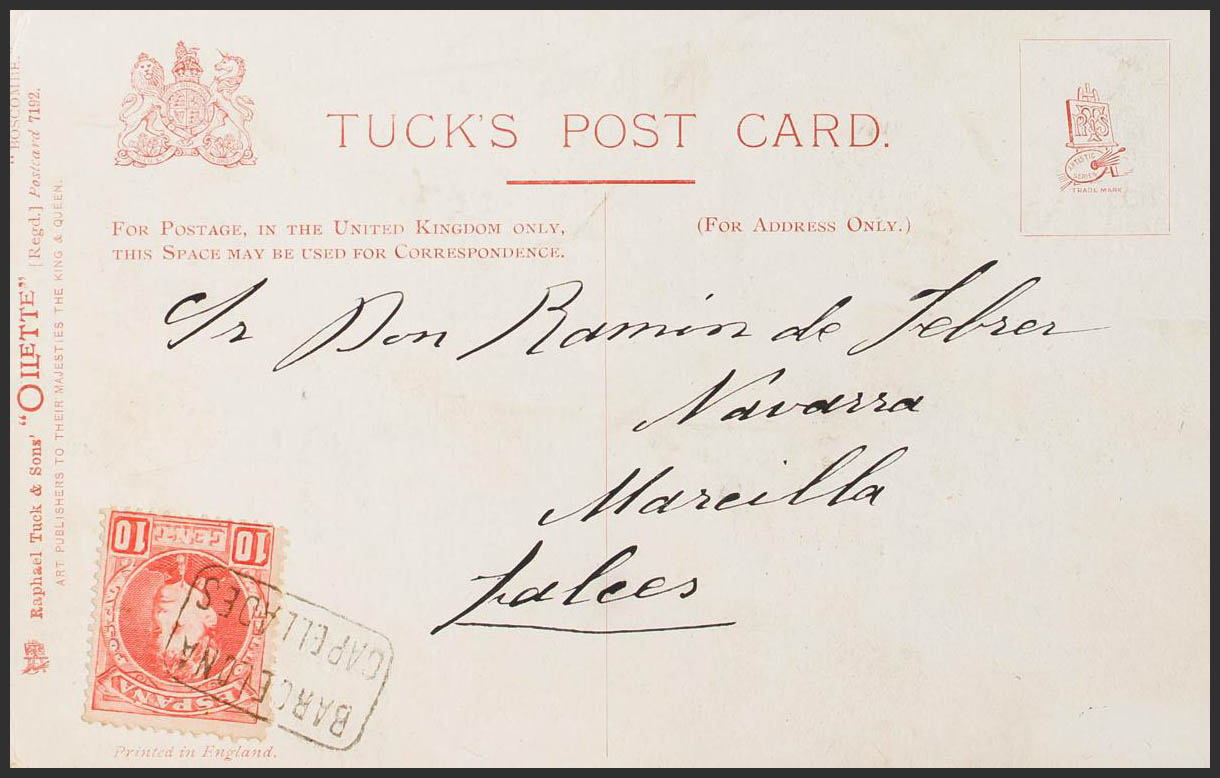 TUCK'S POST CARD.
FOR POSTAGE, IN THE UNITED KINGDOM ONLY,
THIS SPACE MAY BE USED FOR CORRESPONDENCE.
(FOR ADDRESS ONLY.)
ARTISTIC
SERIES
TRADE MARK
Sr Don Ramón de Febrer
Navarra
Marcilla
Falces
"BOSCOMBE."
Raphael Tuck & Sons' "OILETTE" [Regd.] Postcard 7192.
ART PUBLISHERS TO THEIR MAJESTIES THE KING & QUEEN.
10 CENT 10
ESPAÑA
BARCELONA
CAPELLADES
Printed in England.